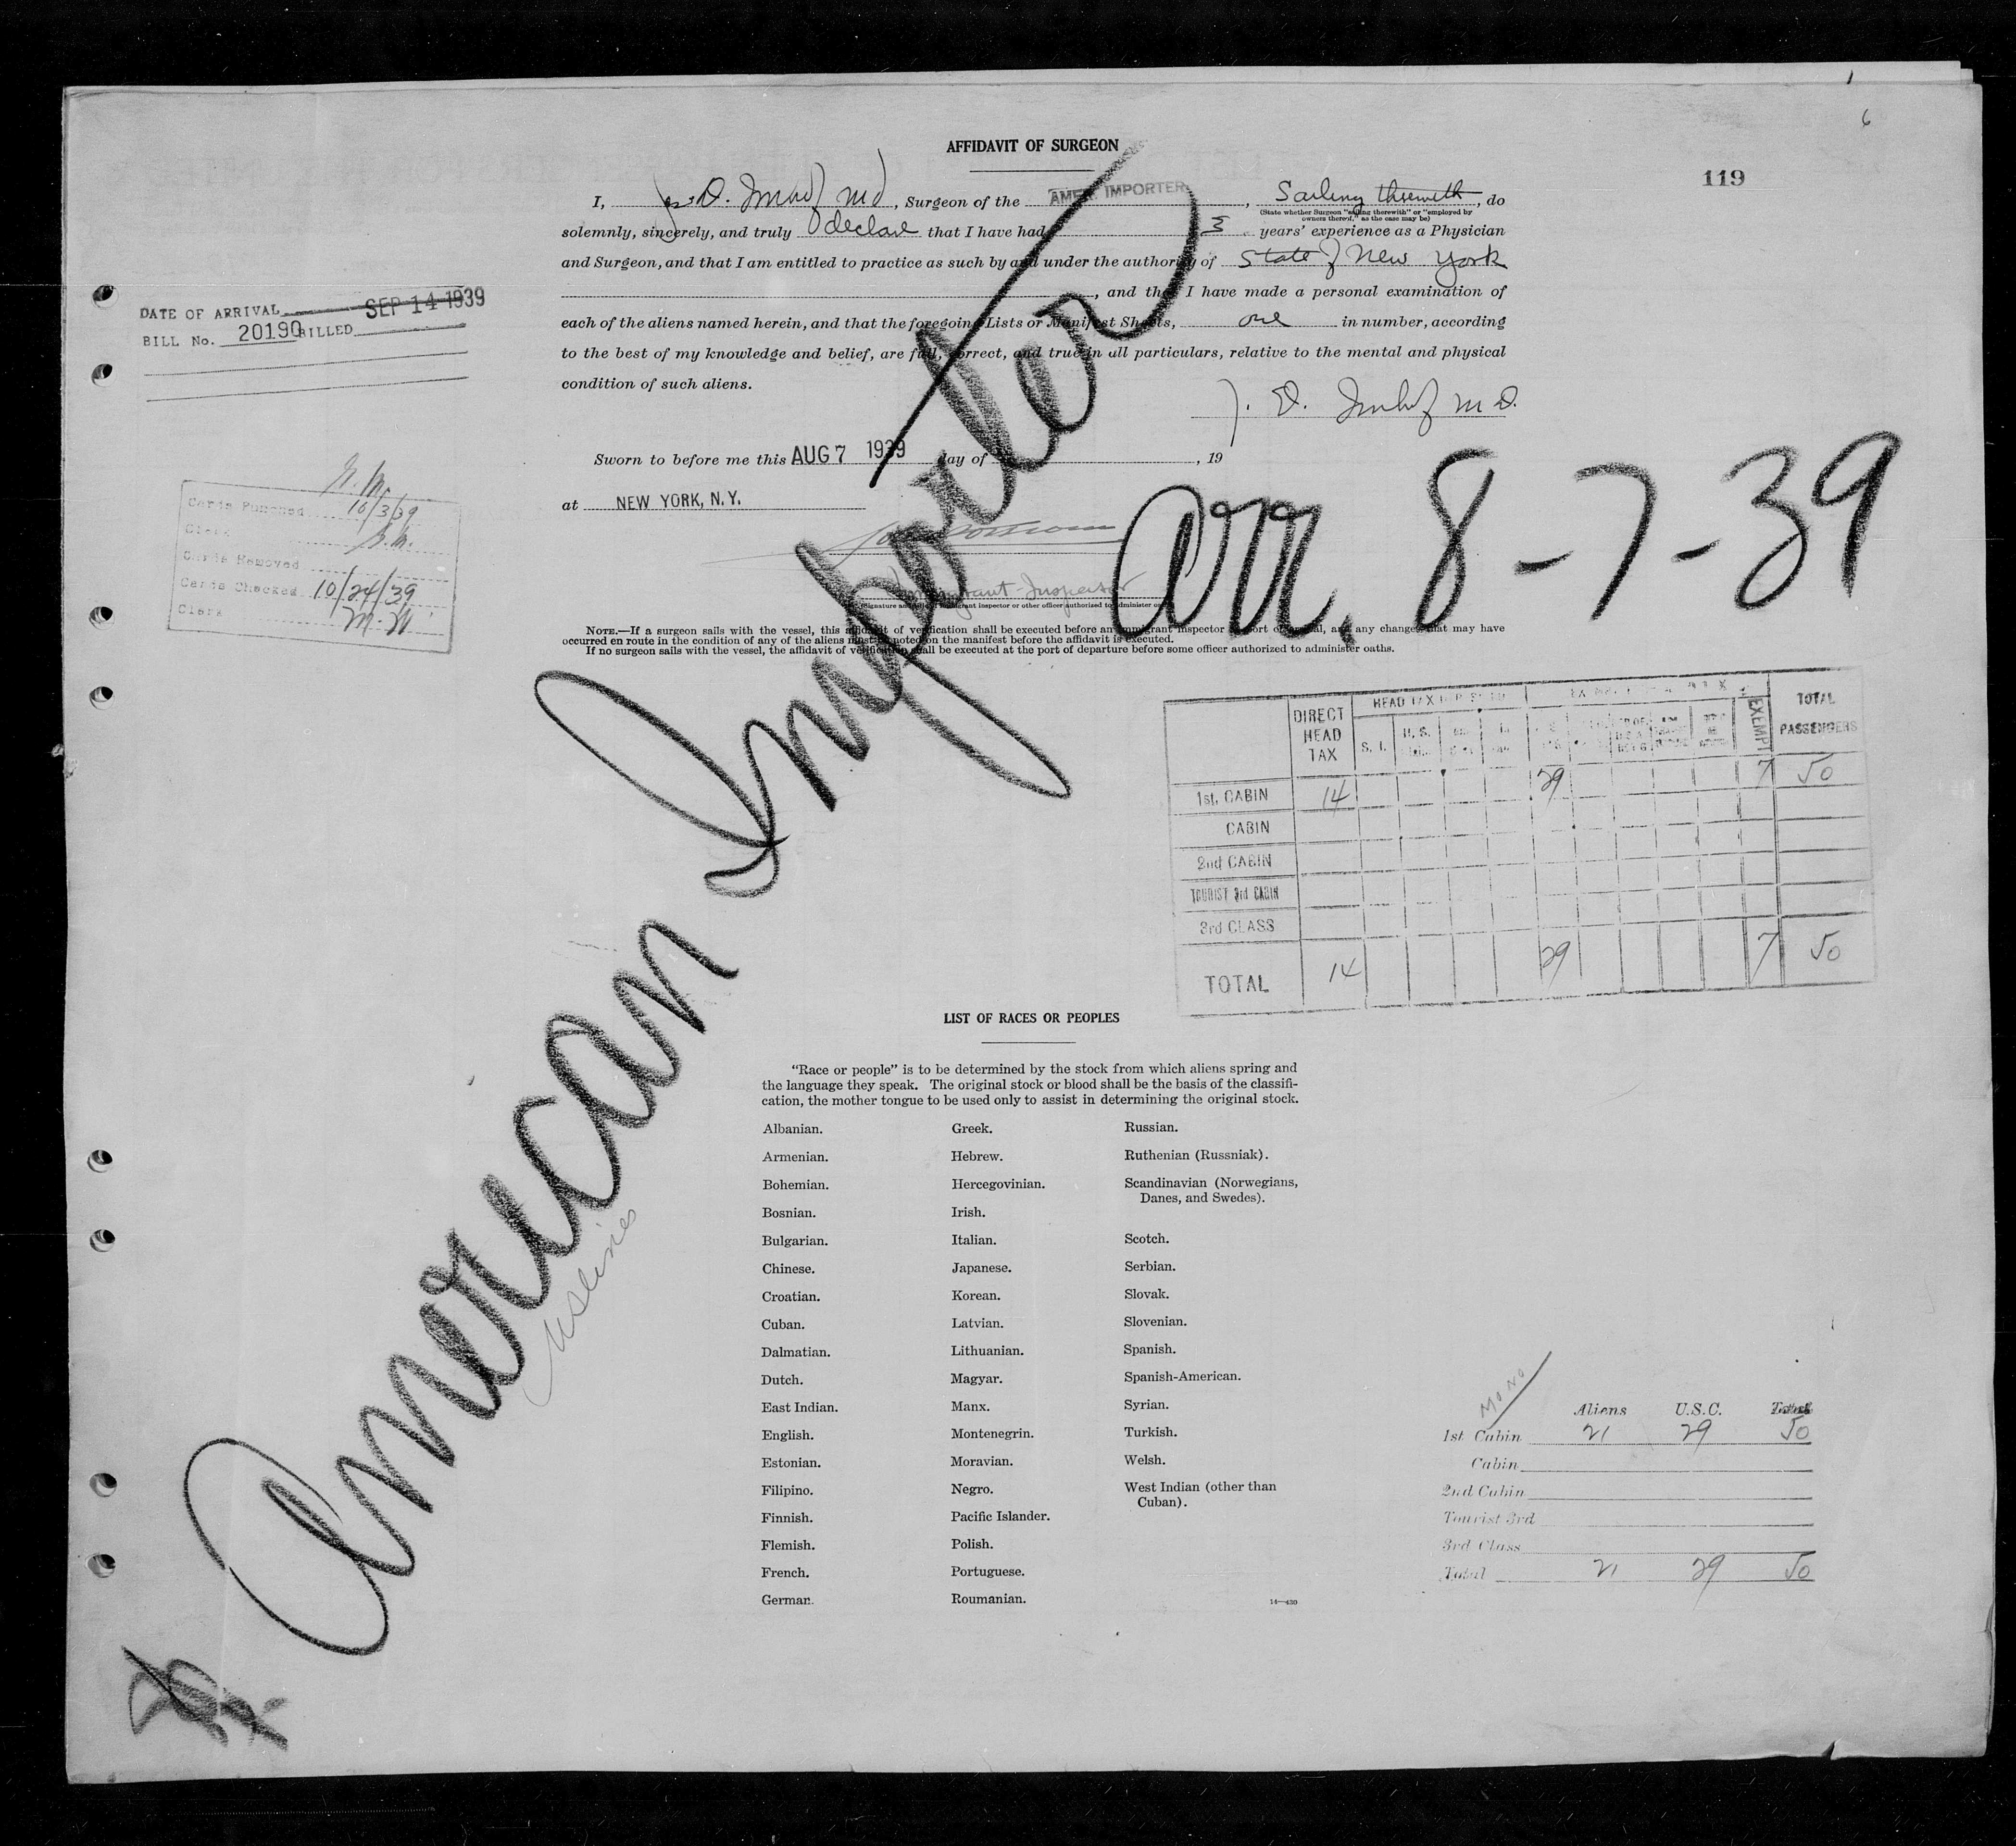 6
AFFIDAVIT OF SURGEON
119
I, J. D. Imhof MD, Surgeon of the AMER. IMPORTER, Sailing therewith, do
(State whether Surgeon "sailing therewith" or "employed by
owners thereof," as the case may be)
solemnly, sincerely, and truly declare that I have had 3 years' experience as a Physician
and Surgeon, and that I am entitled to practice as such by and under the authority of State of New York
, and that I have made a personal examination of
each of the aliens named herein, and that the foregoing Lists or Manifest Sheets, one in number, according
to the best of my knowledge and belief, are full, correct, and true in all particulars, relative to the mental and physical
condition of such aliens.
J. D. Imhof M D.
Sworn to before me this AUG 7 1939 day of , 19
at NEW YORK, N.Y.
Immigrant Inspector
(Signature and title of immigrant inspector or other officer authorized to administer oaths)
NOTE.—If a surgeon sails with the vessel, this affidavit of verification shall be executed before an immigrant inspector at port of arrival, and any changes that may have
occurred en route in the condition of any of the aliens must be noted on the manifest before the affidavit is executed.
If no surgeon sails with the vessel, the affidavit of verification shall be executed at the port of departure before some officer authorized to administer oaths.
DATE OF ARRIVAL SEP 14 1939
BILL No. 20190 BILLED
Cards Punched 10/3/39
Clerk
Cards Removed
Cards Checked 10/24/39
Clerk M.W.
American Importer
arr. 8-7-39
DIRECT HEAD TAX S. I. U. S. EXEMPT TOTAL PASSENGERS
1st. CABIN 14 29 7 50
CABIN
2nd CABIN
TOURIST 3rd CABIN
3rd CLASS
TOTAL 14 29 7 50
LIST OF RACES OR PEOPLES
"Race or people" is to be determined by the stock from which aliens spring and
the language they speak. The original stock or blood shall be the basis of the classifi-
cation, the mother tongue to be used only to assist in determining the original stock.
Albanian.
Armenian.
Bohemian.
Bosnian.
Bulgarian.
Chinese.
Croatian.
Cuban.
Dalmatian.
Dutch.
East Indian.
English.
Estonian.
Filipino.
Finnish.
Flemish.
French.
German.
Greek.
Hebrew.
Hercegovinian.
Irish.
Italian.
Japanese.
Korean.
Latvian.
Lithuanian.
Magyar.
Manx.
Montenegrin.
Moravian.
Negro.
Pacific Islander.
Polish.
Portuguese.
Roumanian.
Russian.
Ruthenian (Russniak).
Scandinavian (Norwegians,
Danes, and Swedes).
Scotch.
Serbian.
Slovak.
Slovenian.
Spanish.
Spanish-American.
Syrian.
Turkish.
Welsh.
West Indian (other than
Cuban).
14—430
US Lines
MONO
Aliens U.S.C. Total
1st Cabin 21 29 50
Cabin
2nd Cabin
Tourist 3rd
3rd Class
Total 21 29 50